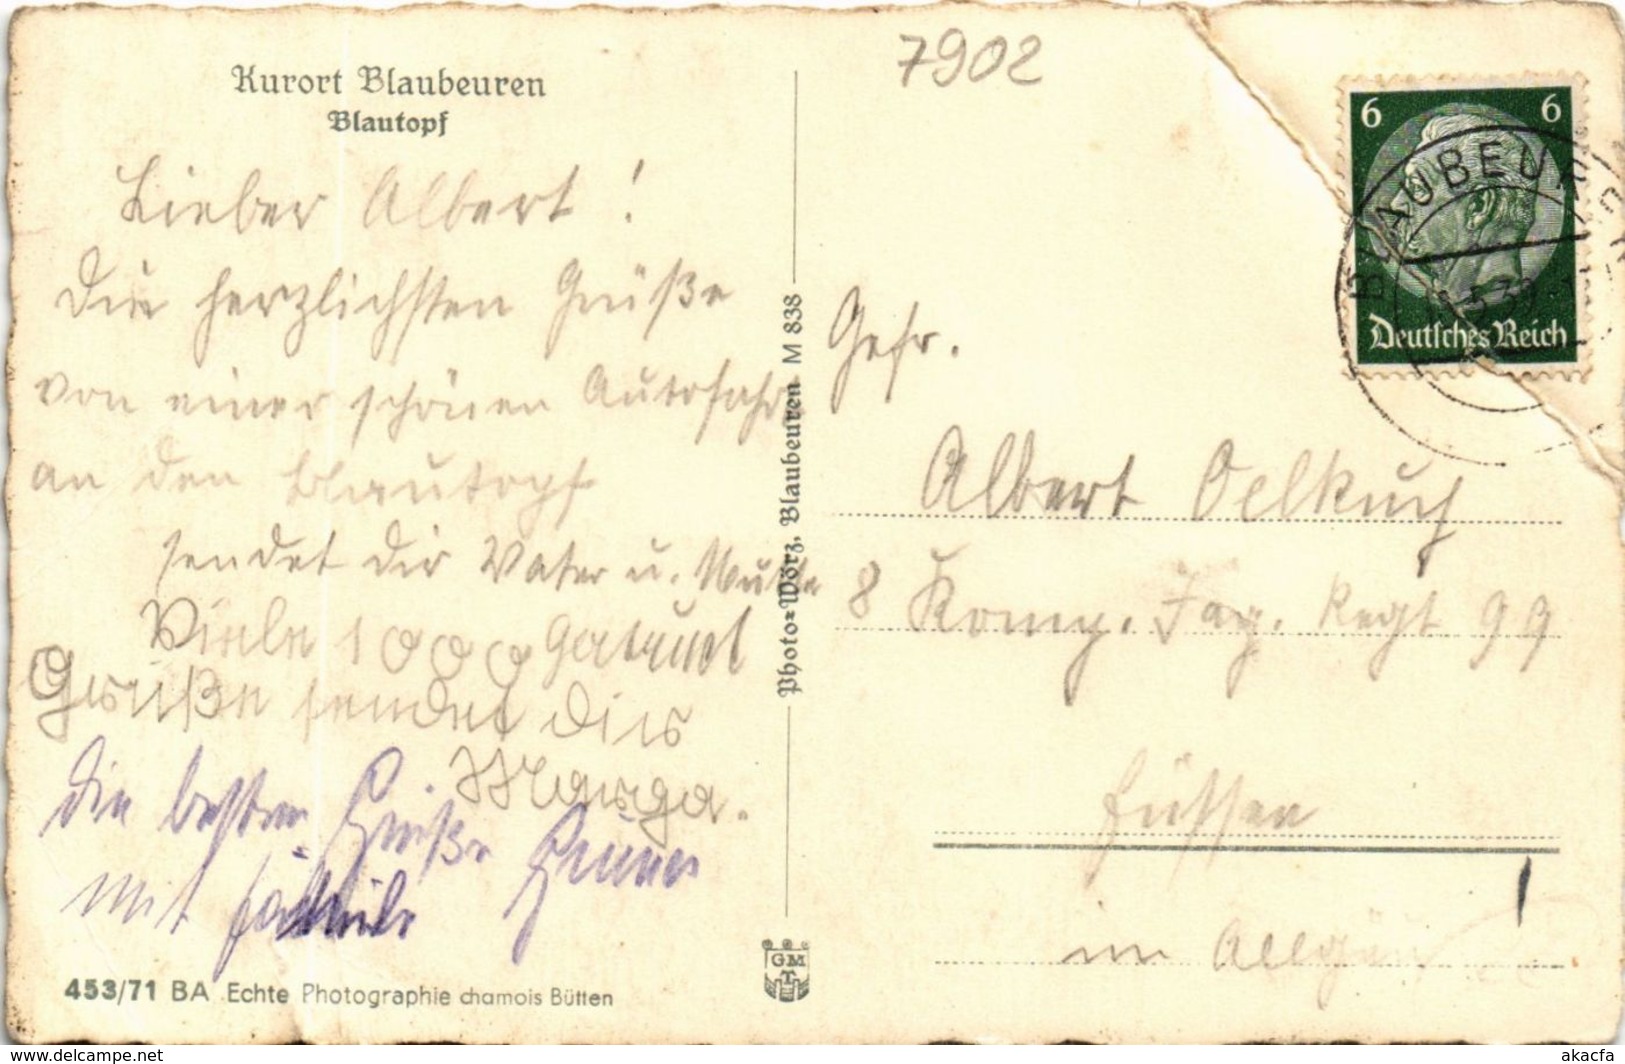 7902
Kurort Blaubeuren
Blautopf
Lieber Albert!
Die herzlichsten Grüße
von einer schönen Autofahrt
an den Blautopf
sendet dir Vater u. Mutter
Viele 1000
Grüße sendet Dir
Marga.
die besten Grüße
mit Familie
453/71 BA Echte Photographie chamois Bütten
Photo=Wörz, Blaubeuren M 838
GM
6 6
Deutsches Reich
BLAUBEUREN
Gefr.
Albert Oelkuch
8 Komp. Jäg. Regt 99
Füssen
im Allgäu
www.delcampe.net
akacfa